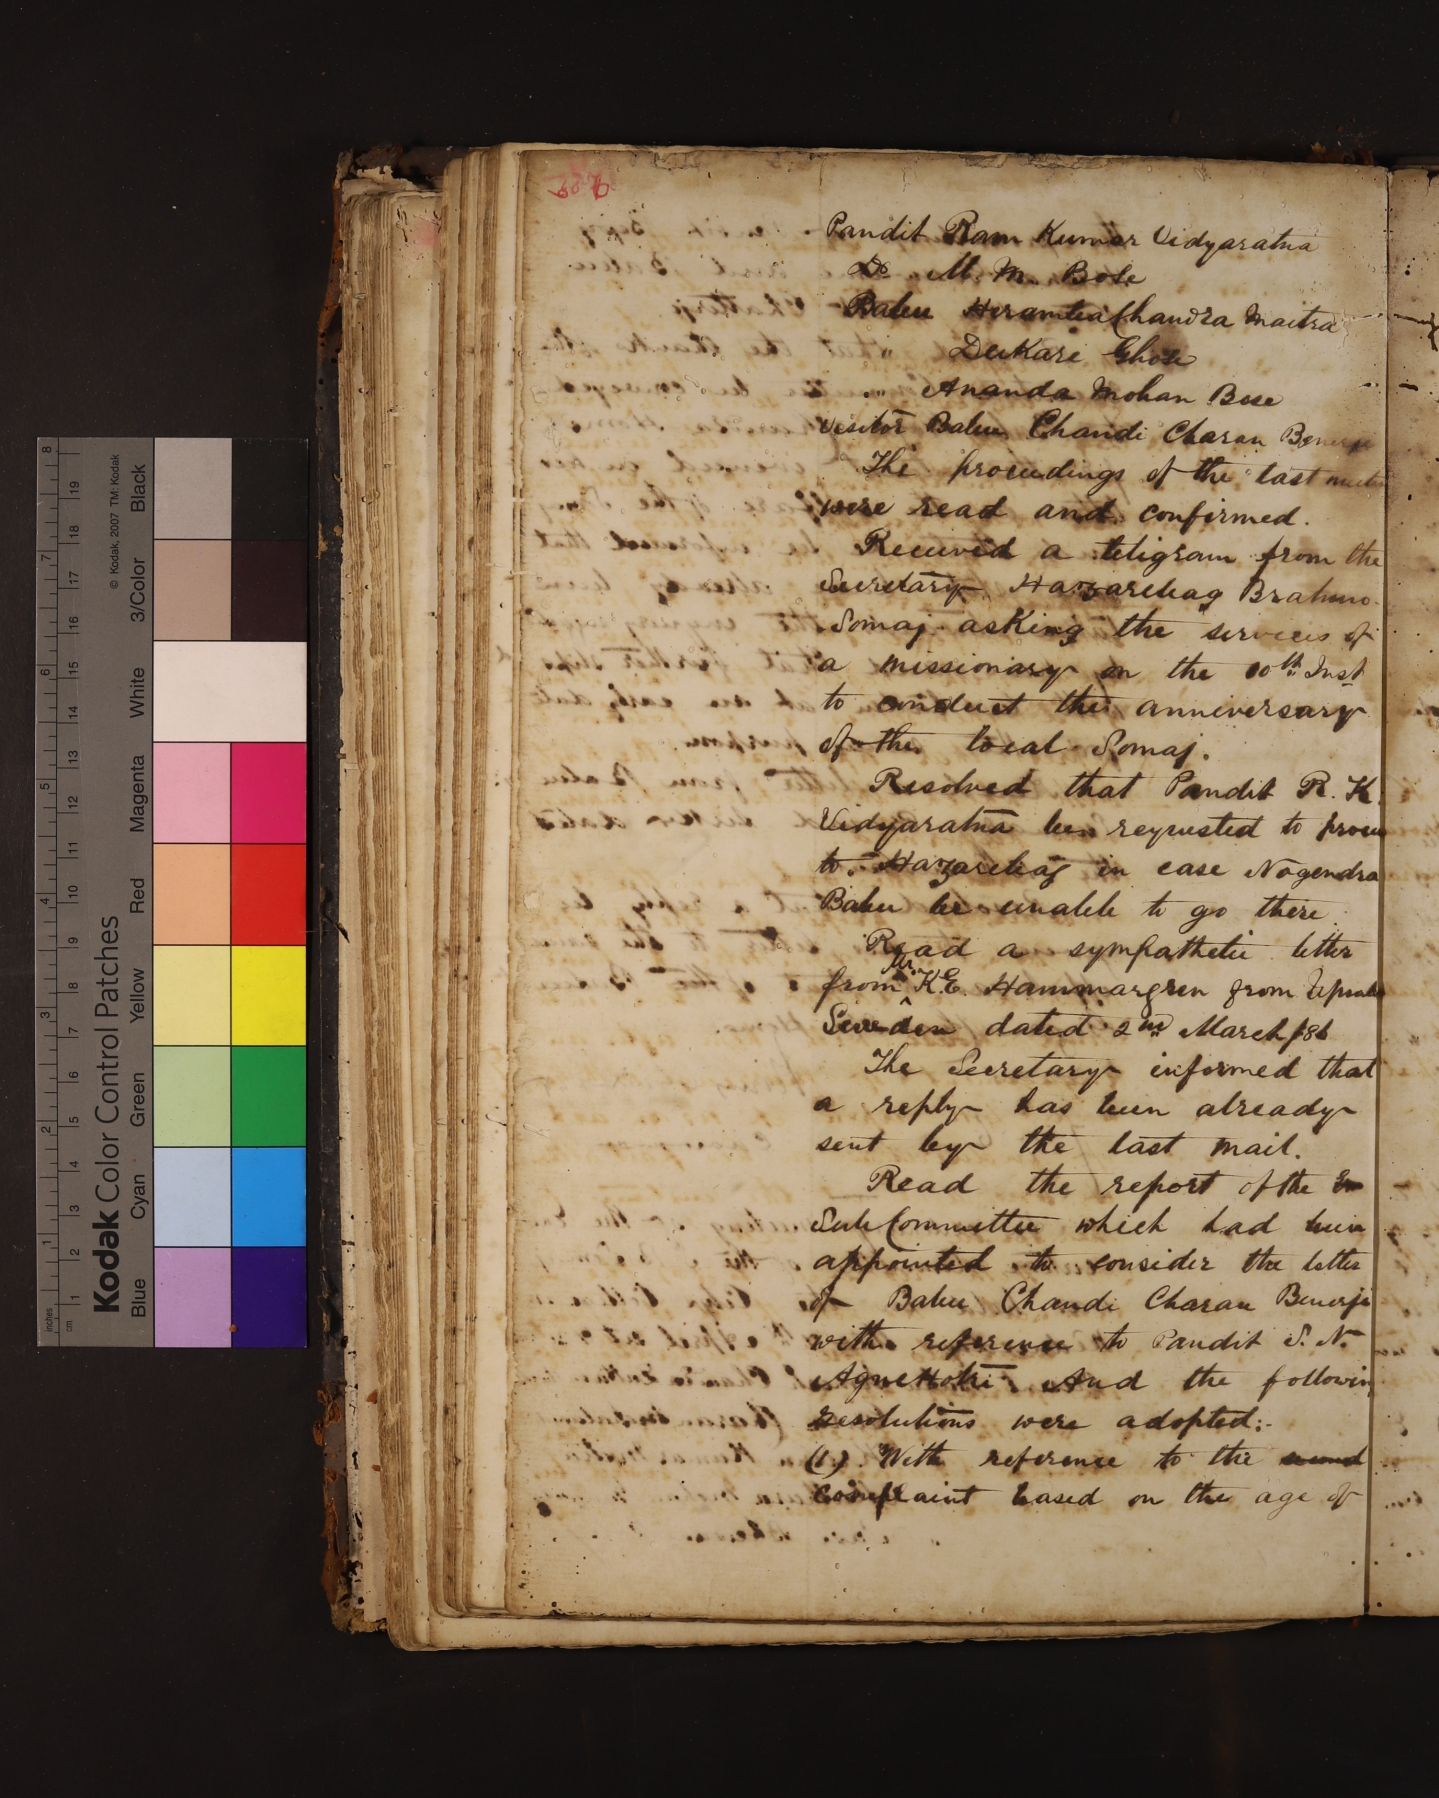 Pandit Ram Kumar Vidyaratna
Dr M. M. Bose
Babu Heramba Chandra Maitra
Dukari Ghose
" Ananda Mohan Bose
Visitor Babu Chandi Charan Benerji
The proceedings of the last
were read and confirmed.
Received a teligram from the
Secretary Hazaribag Brahmo
Somaj asking the services of
a missionary on the 10th Inst
to conduct the anniversary
of the local Somaj.
Resolved that Pandit R. K.
Vidyaratna be requested to
to Hazaribag in case Nogendra
Babu be unable to go there
Read a sympathetic letter
from Mr. K.E. Hammargren from Upsala
Sweden dated 2nd March /86
The Secretary informed that
a reply has been already
sent by the last mail.
Read the report of the
Sub Committee which had been
appointed to consider the letter
of Babu Chandi Charan Benerji
with reference to Pandit S. N.
Agnihotri. And the followin
resolutions were adopted:-
(1) With reference to the
complaint based on the age of
Kodak Color Control Patches
© Kodak, 2007 TM: Kodak
Blue Cyan Green Yellow Red Magenta White 3/Color Black
inches 1 2 3 4 5 6 7 8
cm 1 2 3 4 5 6 7 8 9 10 11 12 13 14 15 16 17 18 19